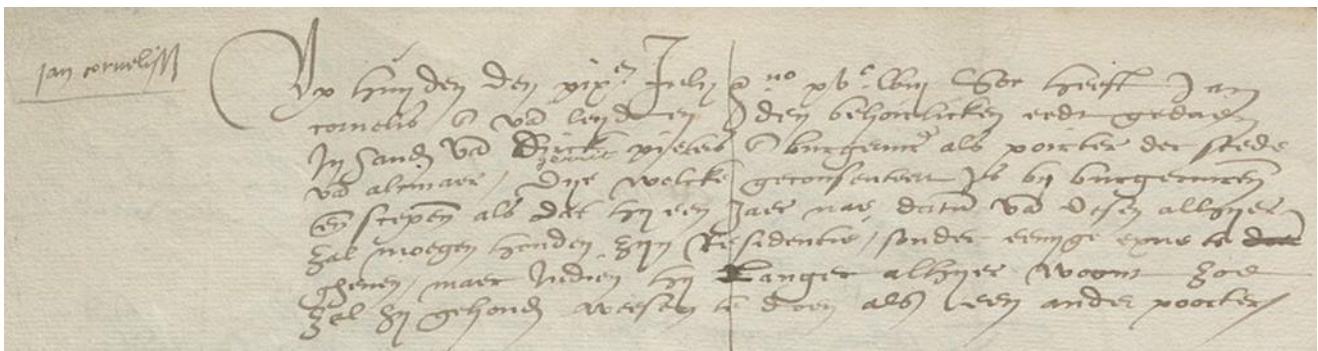 Jan cornelissz
Op huyden den xixen Julij ano xvc lviij Soe heeft Jan
cornelis sz van leyden den behoirlicken eedt gedaen
In handen van Dirck pieters sz burgermr als poirter der stede
van alcmaer / Dye welcke geconsenteert Is bij burgermren
en scepen als dat hij een Jaer nae datum van desen alhyer
zal moegen houden zijn Residentie / sonder eenige exue te
gheven / maer Indien hij Langer alhyer woont zoe
zal hij gehouden weesen te doen als een ander poorter /